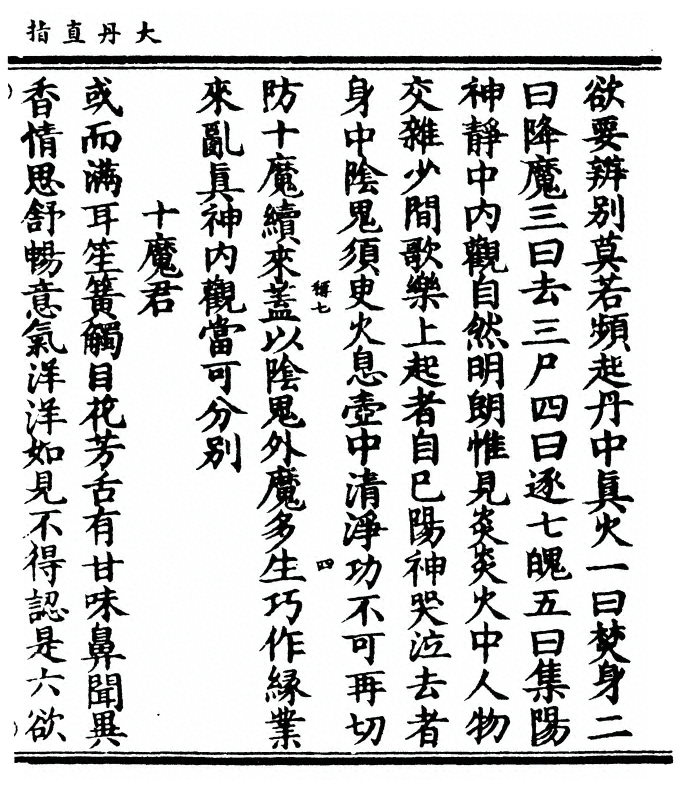 大丹直指
欲要辨别莫若頻起丹中真火一曰焚身二
曰降魔三曰去三尸四曰逐七魄五曰集陽
神靜中內觀自然明朗惟見炎炎火中人物
交雜少間歌樂上起者自己陽神哭泣去者
身中陰鬼須臾火息壺中清淨功不可再切
防十魔續來蓋以陰鬼外魔多生巧作緣業
稱七
四
來亂真神內觀當可分别
十魔君
或而滿耳笙簧觸目花芳舌有甘味鼻聞異
香情思舒暢意氣洋洋如見不得認是六欲